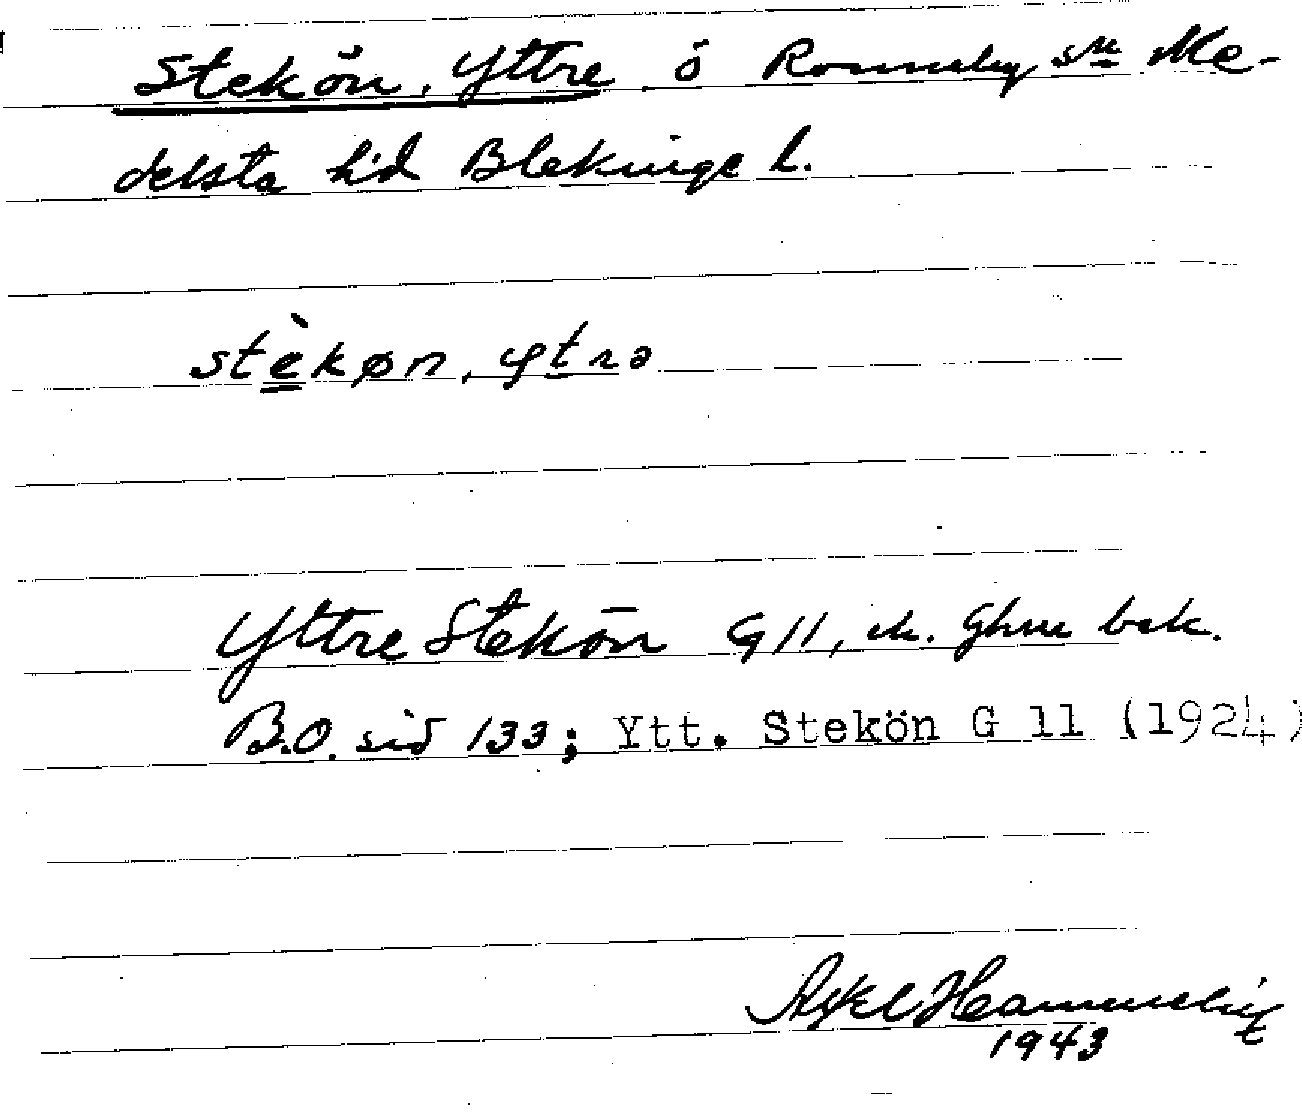 Stekön, Yttre ö Ronneby sn Me-
delsta hd Blekinge l.
stèkøn, ytrə
Yttre Stekön G 11, ek. Ghm bek.
B.O. sid 133; Ytt. Stekön G 11 (1924)
Axel
1943